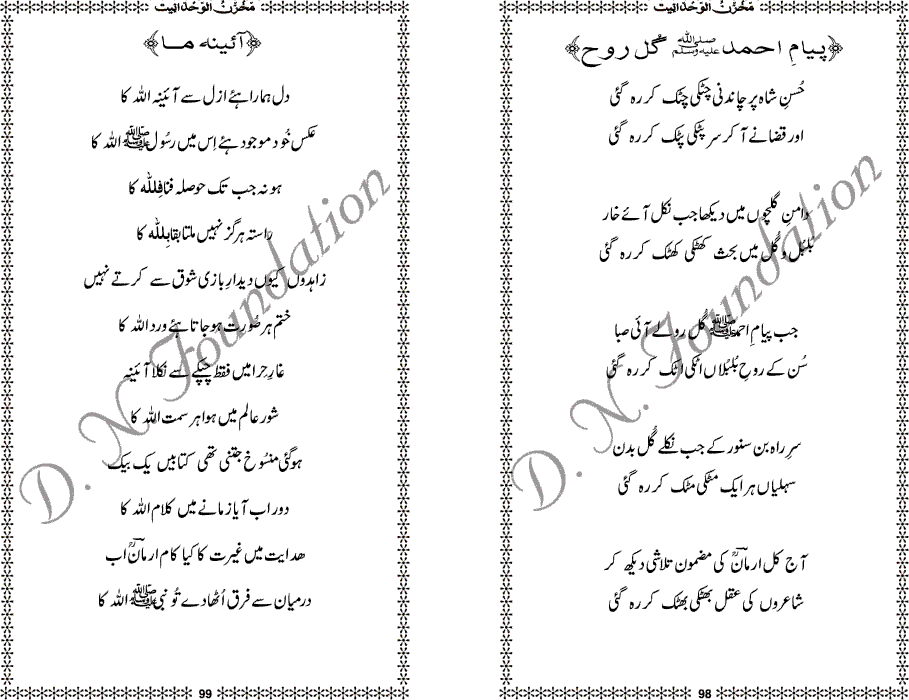 مَخزَنُ الوَحدَانِیت
پیامِ احمد ﷺ گل روح
حُسنِ شاہ پر چاندنی چٹکی چٹک کر رہ گئی
اور قضا نے آ کر سر پٹکی پٹک کر رہ گئی
دامنِ گلچوں میں دیکھا جب نکل آئے خار
بُلبُل و گُل میں بحث کھٹکی کھٹک کر رہ گئی
جب پیامِ احمدﷺ گل رو لے آئی صبا
سُن کے روحِ بُلبُلاں اٹکی اٹک کر رہ گئی
سرِ راہ بن سنور کے جب نکلے گُل بدن
سہلیاں ہر ایک مٹکی مٹک کر رہ گئی
آج کل ارمانؔ کی مضمون تلاشی دیکھ کر
شاعروں کی عقل بھٹکی بھٹک کر رہ گئی
98
مَخزَنُ الوَحدَانِیت
آئینہ مـا
دل ہمارا ہئے ازل سے آئینہ اللہ کا
عکس خُود موجود ہئے اِس میں رسُولﷺ اللہ کا
ہو نہ جب تک حوصلہ فنافِللہ کا
راستہ ہرگز نہیں ملتا بقابِللہ کا
زاہدوں کیوں دیدار بازی شوق سے کرتے نہیں
ختم ہر صُورت ہو جاتا ہئے ورد اللہ کا
غارِ حرا میں فقط چپکے سے نکلا آئینہ
شور عالم میں ہوا ہر سمت اللہ کا
ہو گئی منسُوخ جتنی تھی کتابیں یک بیک
دور اب آیا زمانے میں کلام اللہ کا
ھدایت میں غیرت کا کیا کام ارمانؔ اب
درمیان سے فرق اُٹھا دے تُو نبیﷺ اللہ کا
99
D. N. Foundation
D. N. Foundation